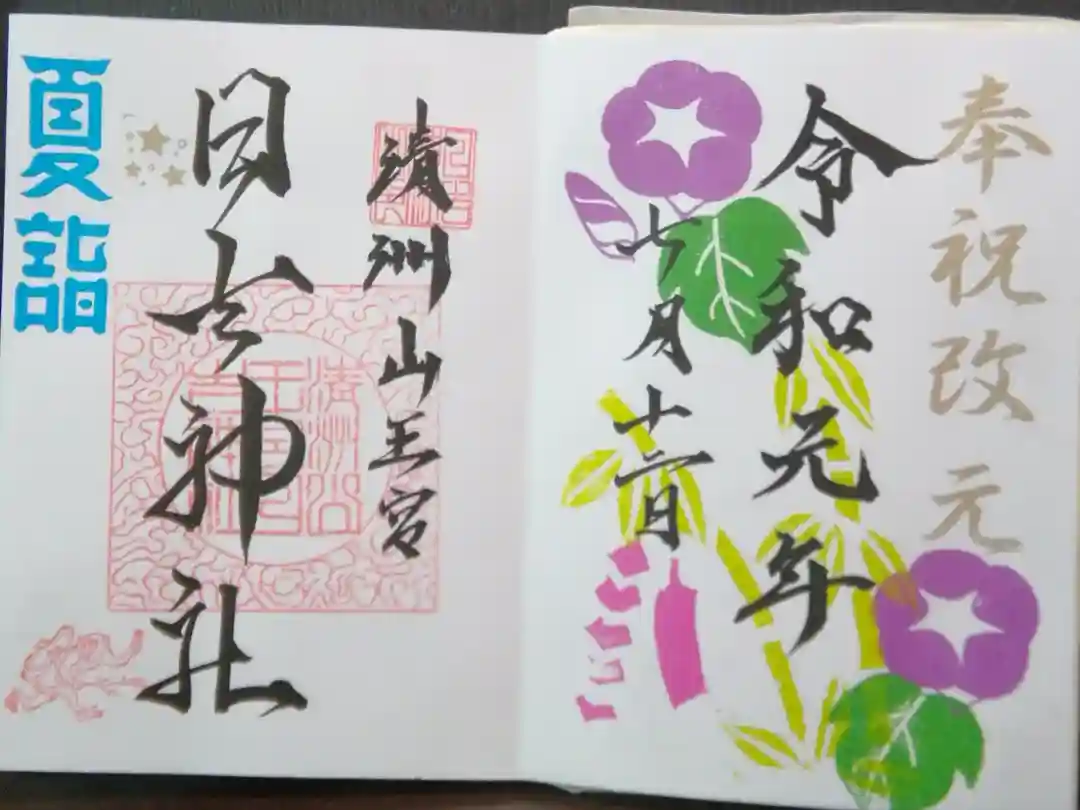 奉祝改元
令和元年
七月十二日
清洲山王宮
日吉神社
夏詣